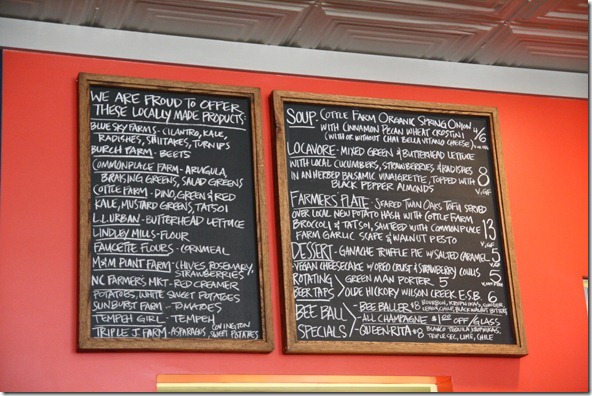 WE ARE PROUD TO OFFER
THESE LOCALLY MADE PRODUCTS:
BLUE SKY FARMS - CILANTRO, KALE,
RADISHES, SHIITAKES, TURNIPS
BURCH FARM - BEETS
COMMONPLACE FARM - ARUGULA,
BRAISING GREENS, SALAD GREENS
COTTLE FARM - DINO, GREEN & RED
KALE, MUSTARD GREENS, TATSOI
L.L. URBAN - BUTTERHEAD LETTUCE
LINDLEY MILLS - FLOUR
FAUCETTE FLOURS - CORNMEAL
M&M PLANT FARM - CHIVES, ROSEMARY,
STRAWBERRIES
NC FARMERS MKT - RED CREAMER
POTATOES, WHITE SWEET POTATOES
SUNBURST FARM - TOMATOES
TEMPEH GIRL - TEMPEH
TRIPLE J FARM - ASPARAGUS, COVINGTON SWEET POTATOES
SOUP: COTTLE FARM ORGANIC SPRING ONION
WITH CINNAMON PECAN WHEAT CROSTINI 4/6
(WITH OR WITHOUT CHAI BELLA VITANO CHEESE)
LOCAVORE - MIXED GREEN & BUTTERHEAD LETTUCE
WITH LOCAL CUCUMBERS, STRAWBERRIES & RADISHES 8
IN AN HERBED BALSAMIC VINAIGRETTE, TOPPED WITH
BLACK PEPPER ALMONDS V, GF
FARMERS PLATE - SEARED TWIN OAKS TOFU SERVED
OVER LOCAL NEW POTATO HASH WITH COTTLE FARM
BROCCOLI & TATSOI, SAUTÉED WITH COMMONPLACE 13
FARM GARLIC SCAPE & WALNUT PESTO V, GF
DESSERT - GANACHE TRUFFLE PIE W/ SALTED CARAMEL 5
- VEGAN CHEESECAKE W/ OREO CRUST & STRAWBERRY COULIS 5
ROTATING BEER TAPS
GREEN MAN PORTER 5
OLDE HICKORY WILSON CREEK E.S.B. 6
BEE BALL SPECIALS
- BEE BALLER $8 BOURBON, KRUPNIKAS, GINGER,
LEMON JUICE, BLACK WALNUT BITTERS
- ALL CHAMPAGNE $1.00 OFF/GLASS
- QUEEN RITA $8 BLANCO TEQUILA, KRUPNIKAS,
TRIPLE SEC, LIME, CHILE